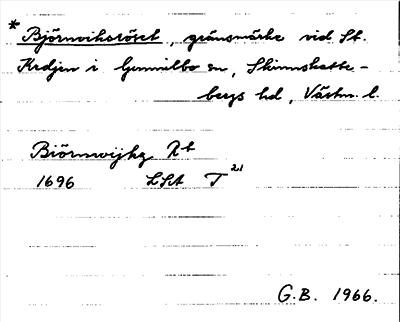 * Björnviksröset, gränsmärke vid St.
Kedjen i Gunnilbo sn, Skinnskatte-
bergs hd, Västm. l.
Biörnwijkz Rt
1696 LSA T 21
G.B. 1966.